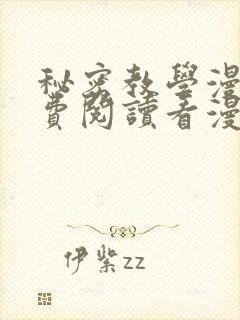 秘密教學漫
費閱讀看漫
伊紫zz